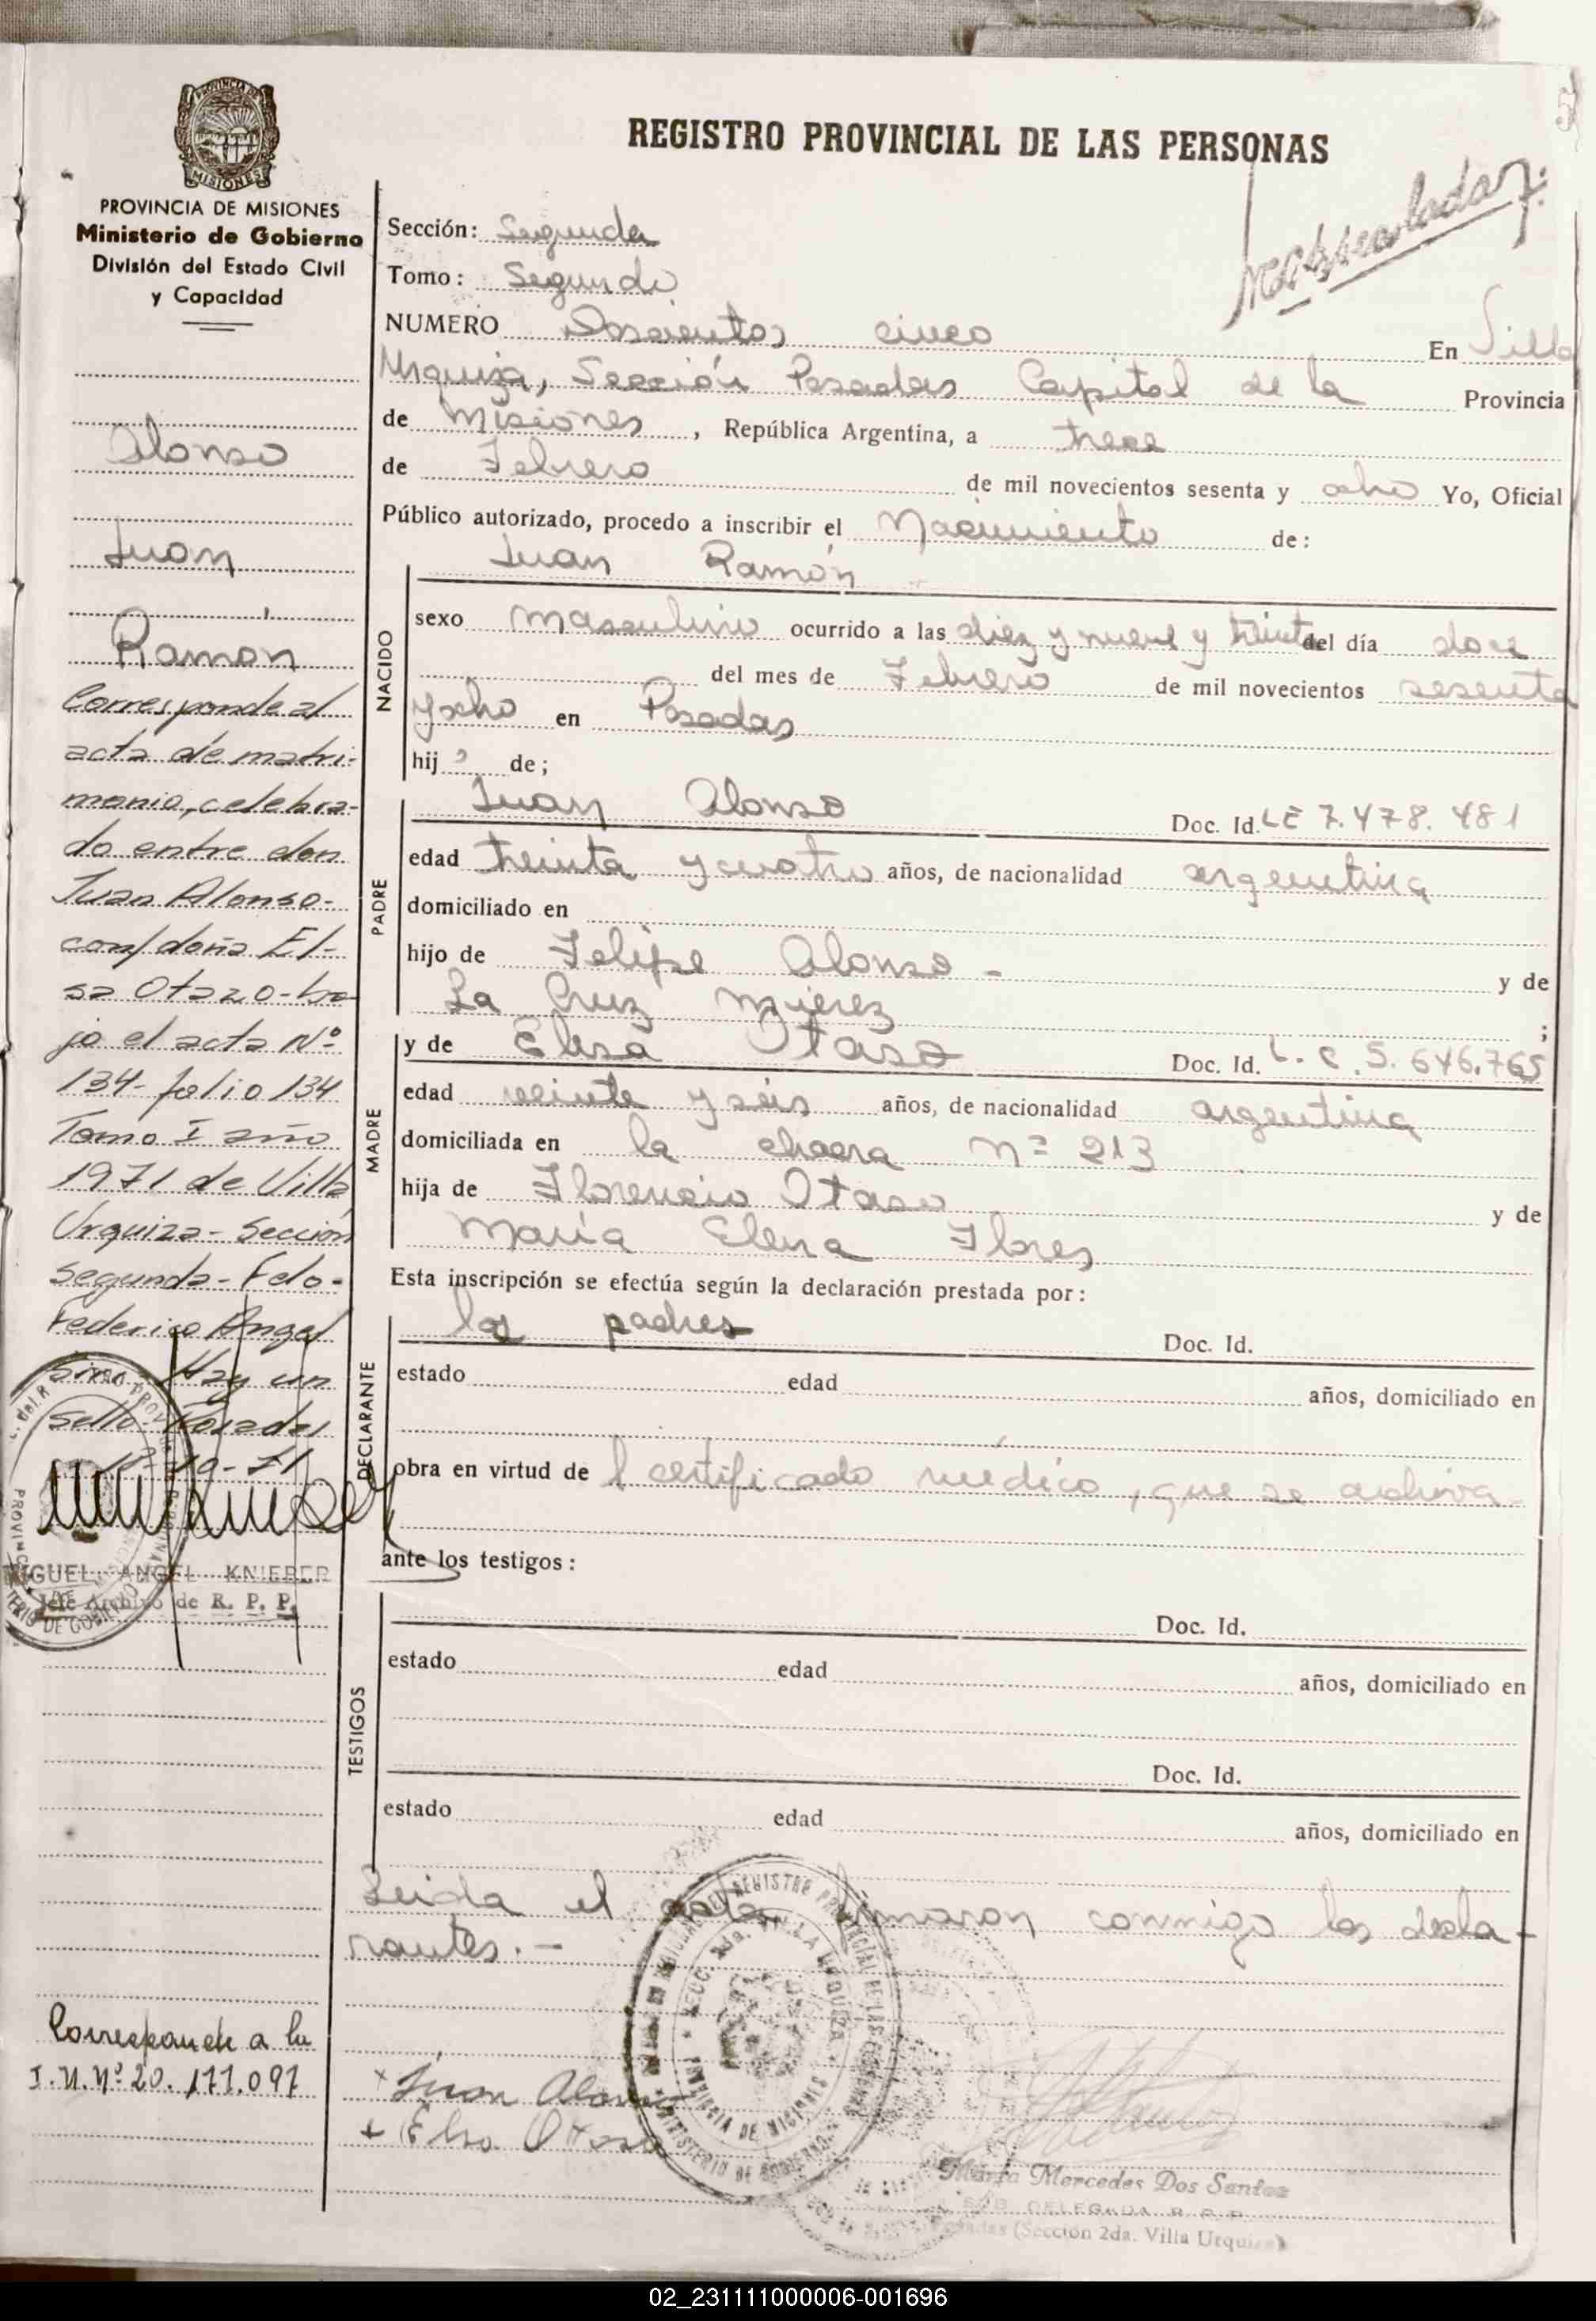 REGISTRO PROVINCIAL DE LAS PERSONAS
PROVINCIA DE MISIONES
Ministerio de Gobierno
División del Estado Civil
y Capacidad
Alonso
Juan
Ramón
Corresponde al
acta de matri-
monio, celebra-
do entre don
Juan Alonso-
con/ doña El-
sa Otazo-ba
jo el acta Nº
134- folio 134
Tomo I año
1971 de Villa
Urquiza- Sección
segunda- Fdo-
Federico Angel
Hay un
sello- Posadas
-10-71
MIGUEL ANGEL KNIEBER
Jefe Archivo de R. P. P.
Corresponde a la
I.N.Nº 20.177.097
Sección: Segunda
Tomo: Segundo
NUMERO Doscientos cinco En Villa
Urquiza, Sección Posadas Capital de la Provincia
de Misiones, República Argentina, a trece
de Febrero de mil novecientos sesenta y ocho Yo, Oficial
Público autorizado, procedo a inscribir el Nacimiento de:
NACIDO
Juan Ramón
sexo masculino ocurrido a las diez y nueve y treinta del día doce
del mes de Febrero de mil novecientos sesenta
y ocho en Posadas
hijo de;
PADRE
Juan Alonso Doc. Id. LE 7.478.481
edad treinta y cuatro años, de nacionalidad argentina
domiciliado en
hijo de Felipe Alonso - y de
La Cruz Mierez ;
MADRE
y de Elsa Otaso Doc. Id. L.C. 5.646.765
edad veinte y seis años, de nacionalidad argentina
domiciliada en la chacra Nº 213
hija de Florencio Otaso y de
María Elena Flores
Esta inscripción se efectúa según la declaración prestada por:
DECLARANTE
los padres Doc. Id.
estado edad años, domiciliado en
obra en virtud de l certificado médico, que se archiva-
ante los testigos:
TESTIGOS
Doc. Id.
estado edad años, domiciliado en
Doc. Id.
estado edad años, domiciliado en
Leida el acta firmaron conmigo los decla-
rantes.-
+ Juan Alonso
+ Elsa Otaso
María Mercedes Dos Santos
SUB DELEGADA R. P. P.
Posadas (Sección 2da. Villa Urquiza)
02_231111000006-001696